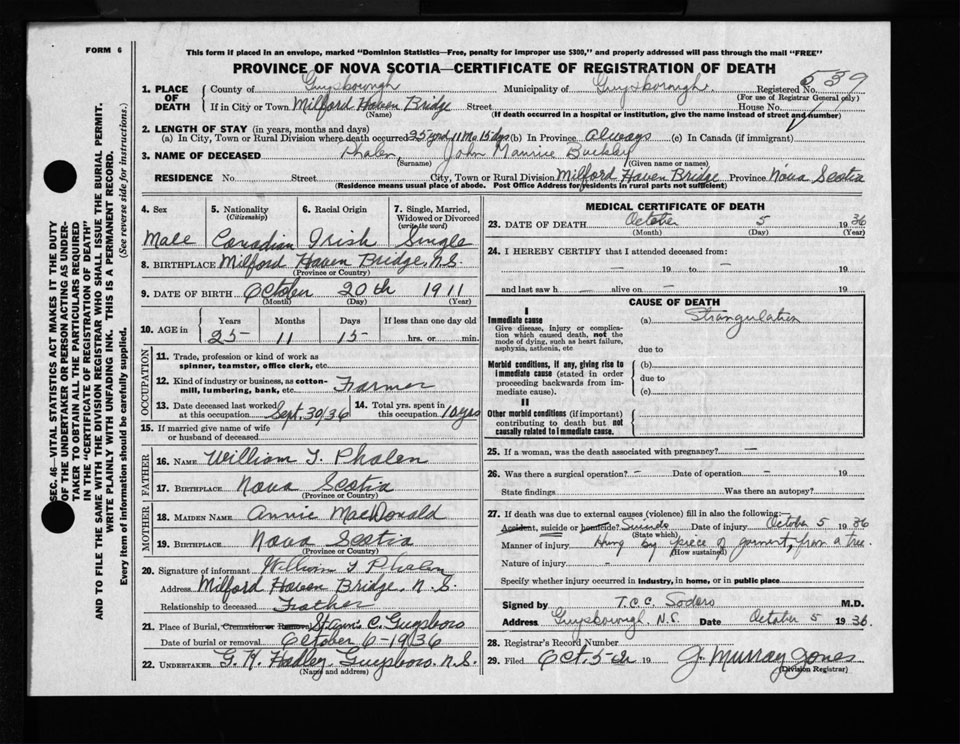 FORM 6
This form if placed in an envelope, marked "Dominion Statistics—Free, penalty for improper use $300," and properly addressed will pass through the mail "FREE"
PROVINCE OF NOVA SCOTIA—CERTIFICATE OF REGISTRATION OF DEATH
539
1. PLACE OF DEATH County of Guysborough Municipality of Guysborough. Registered No.
(For use of Registrar General only)
If in City or Town Milford Haven Bridge Street House No.
(Name) (If death occurred in a hospital or institution, give the name instead of street and number)
2. LENGTH OF STAY (in years, months and days)
(a) In City, Town or Rural Division where death occurred 25 yrs 11 Mo 15 dys (b) In Province always (c) In Canada (if immigrant)
3. NAME OF DECEASED Phalen, John Maurice Buckley
(Surname) (Given name or names)
RESIDENCE No. Street City, Town or Rural Division Milford Haven Bridge Province Nova Scotia
(Residence means usual place of abode. Post Office Address for residents in rural parts not sufficient)
SEC. 46—VITAL STATISTICS ACT MAKES IT THE DUTY
OF THE UNDERTAKER OR PERSON ACTING AS UNDER-
TAKER TO OBTAIN ALL THE PARTICULARS REQUIRED
IN THE "CERTIFICATE OF REGISTRATION OF DEATH"
AND TO FILE THE SAME WITH THE DIVISION REGISTRAR WHO SHALL ISSUE THE BURIAL PERMIT.
WRITE PLAINLY WITH UNFADING INK. THIS IS A PERMANENT RECORD.
Every item of information should be carefully supplied. (See reverse side for instructions.)
4. Sex 5. Nationality 6. Racial Origin 7. Single, Married,
(Citizenship) Widowed or Divorced
(write the word)
Male Canadian Irish Single
8. BIRTHPLACE Milford Haven Bridge, N.S.
(Province or Country)
9. DATE OF BIRTH October 20th 1911
(Month) (Day) (Year)
10. AGE in Years Months Days If less than one day old
25 11 15 hrs. or min.
OCCUPATION
11. Trade, profession or kind of work as
spinner, teamster, office clerk, etc.
12. Kind of industry or business, as cotton-
mill, lumbering, bank, etc. Farmer
13. Date deceased last worked
at this occupation Sept. 30/36
14. Total yrs. spent in
this occupation 10 yrs
15. If married give name of wife
or husband of deceased
FATHER
16. NAME William T. Phalen
17. BIRTHPLACE Nova Scotia
(Province or Country)
MOTHER
18. MAIDEN NAME Annie MacDonald
19. BIRTHPLACE Nova Scotia
(Province or Country)
20. Signature of informant William T Phalen
Address Milford Haven Bridge, N.S.
Relationship to deceased Father
21. Place of Burial, Cremation or Removal C. Guysboro
Date of burial or removal October 6 - 1936
22. UNDERTAKER G. H. Hadley Guysboro, N.S.
(Name and address)
MEDICAL CERTIFICATE OF DEATH
23. DATE OF DEATH October 5 1936
(Month) (Day) (Year)
24. I HEREBY CERTIFY that I attended deceased from:
— 19 to — 19
and last saw h — alive on — 19
CAUSE OF DEATH
I
Immediate cause
Give disease, injury or complica-
tion which caused death, not the
mode of dying, such as heart failure,
asphyxia, asthenia, etc
(a) Strangulation
due to
Morbid conditions, if any, giving rise to
immediate cause (stated in order
proceeding backwards from im-
mediate cause).
(b)
due to
(c)
II
Other morbid conditions (if important)
contributing to death but not
causally related to immediate cause.
25. If a woman, was the death associated with pregnancy? —
26. Was there a surgical operation? — Date of operation — 19
State findings Was there an autopsy?
27. If death was due to external causes (violence) fill in also the following:
Accident, suicide or homicide? Suicide Date of injury October 5 1936
(State which)
Manner of injury Hung by piece of garment, from a tree.
(How sustained)
Nature of injury —
Specify whether injury occurred in industry, in home, or in public place
Signed by T.C.C. Soders M.D.
Address Guysborough, N.S. Date October 5 1936.
28. Registrar's Record Number
29. Filed Oct. 5 19 J. Murray Jones
(Division Registrar)